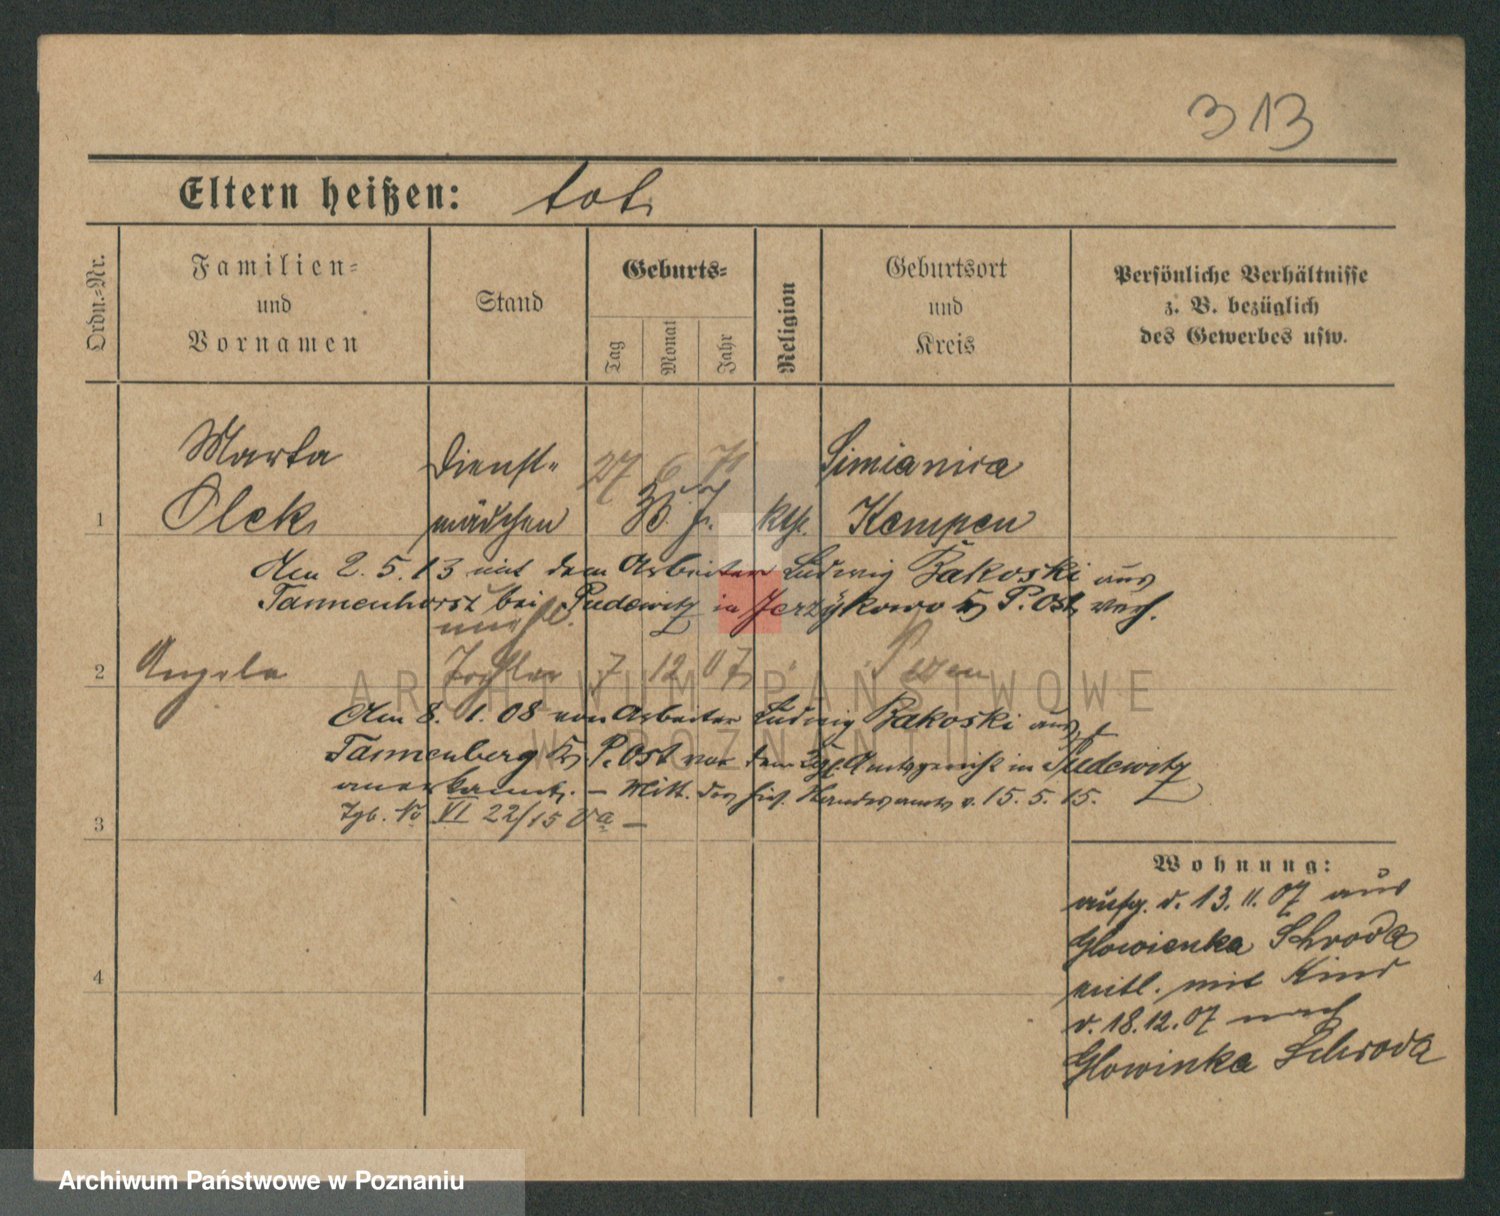 313
Eltern heißen: tot.
Ordn.-Nr.
Familien-
und
Vornamen
Stand
Geburts-
Tag
Monat
Jahr
Religion
Geburtsort
und
Kreis
Persönliche Verhältnisse
z. B. bezüglich
des Gewerbes usw.
Marta Dienst- 27 6 Simianica
1 Olek mädchen J. kth. Kempen
Am 2.5.13 mit dem Arbeiter Ludwig Bakoski aus
Tannenhorst bei Pudewitz in Jerzykowo Kr P. Ost verh.
unehl.
2 Angela Tochter 7 12 07 Posen
Am 8.1.08 von Arbeiter Ludwig Bakoski aus
Tannenberg Kr P. Ost vor dem Kgl. Amtsgericht in Pudewitz
anerkannt. – Mitt. des hies. Standesamts v. 15.5.15.
Tgb. No VI 22/15
3
4
Wohnung:
aufg. d. 13.11.07 aus
Glowienka Schroda
entl. mit Kind
d. 18.12.07 nach
Glowinka Schroda
ARCHIWUM PAŃSTWOWE
W POZNANIU
Archiwum Państwowe w Poznaniu